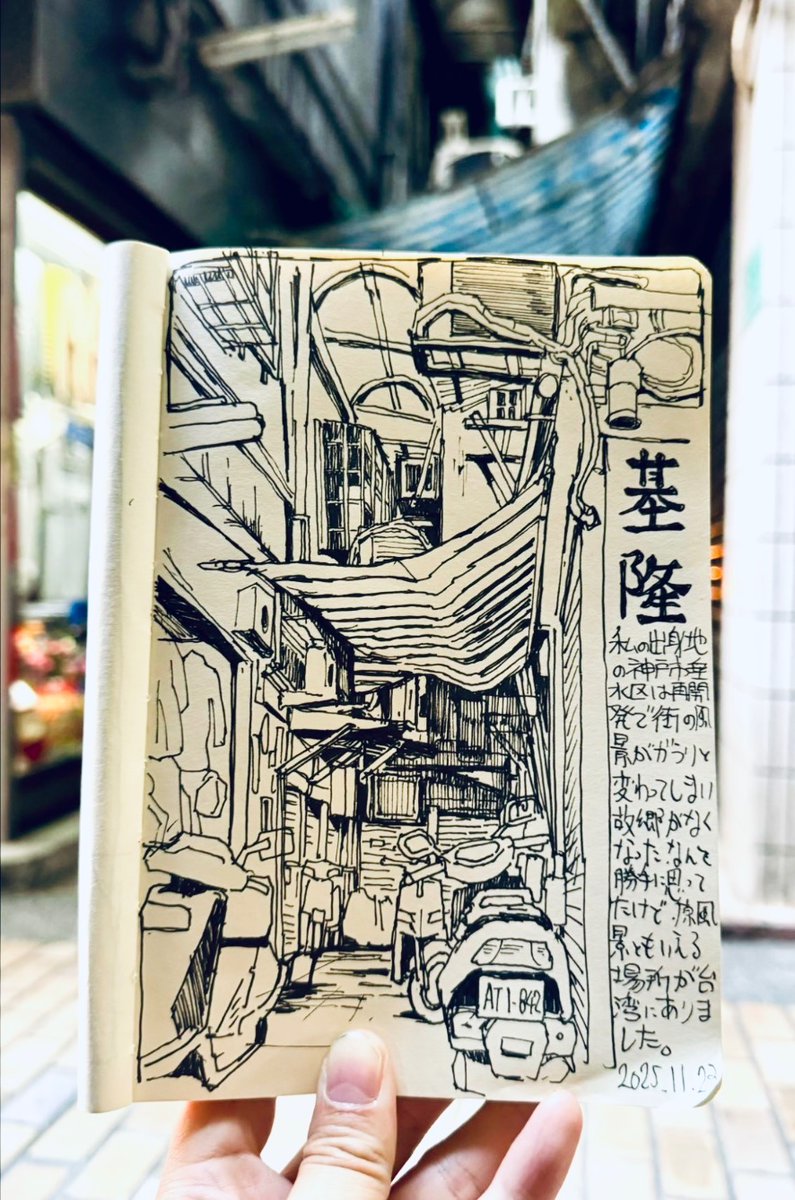 基
隆
私の出身地
の神戸市垂
水区は再開
発で街の風
景がガラリと
変わってしまい
故郷がなく
なった。なんて
勝手に思って
たけど、原風
景ともいえる
場所が台
湾にありま
した。
2025.11.22
AT1-842